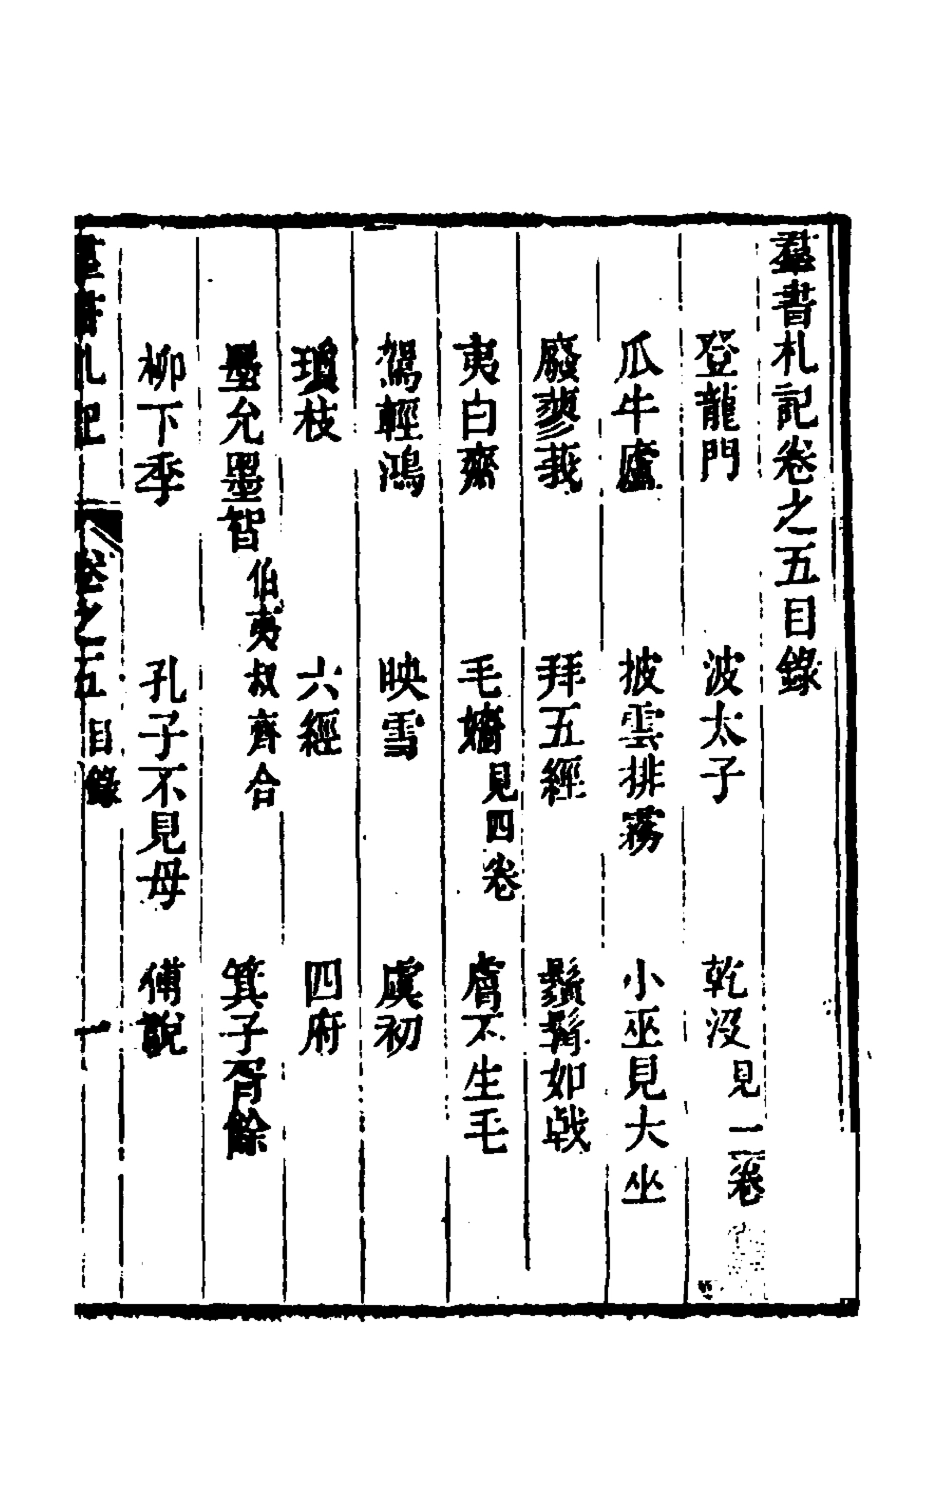 羣書札記卷之五目錄
登龍門　波太子　乾沒見一卷
瓜牛廬　披雲排霧　小巫見大巫
廢蓼莪　拜五經　鬚髯如戟
夷白齋　毛嬙見四卷　膚不生毛
駕輕鴻　映雪　虞初
瓊枝　六經　四府
墨允墨智伯夷叔齊合　箕子胥餘
柳下季　孔子不見母　傅說
羣書札記　卷之五目錄　一